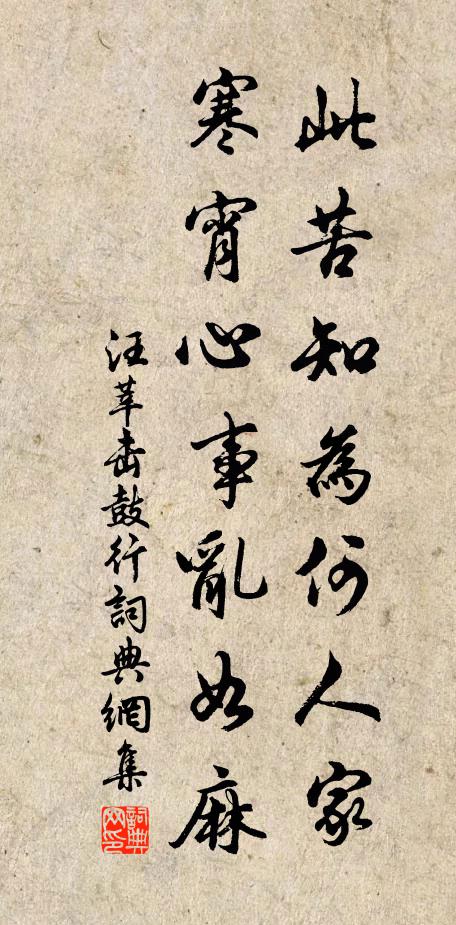 此苦知為何人家
寒宵心事亂如麻
汪莘擊鼓行詞典網集
詞典網印